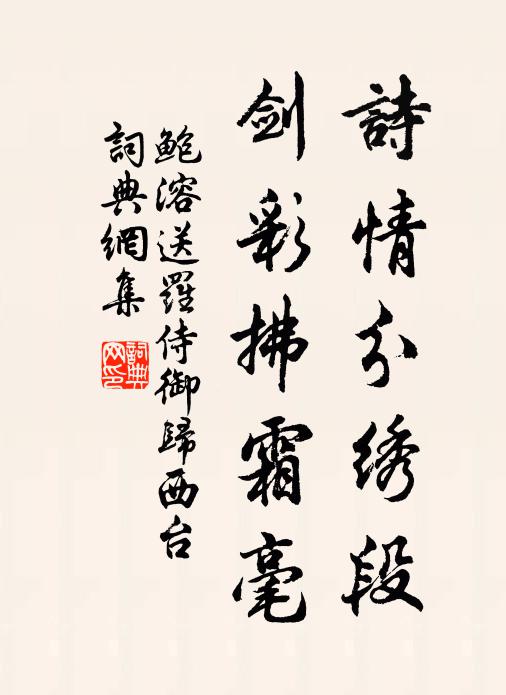 詩情分绣段
剑彩拂霜毫
鲍溶送羅侍御歸西台
詞典網集
詞典
网印